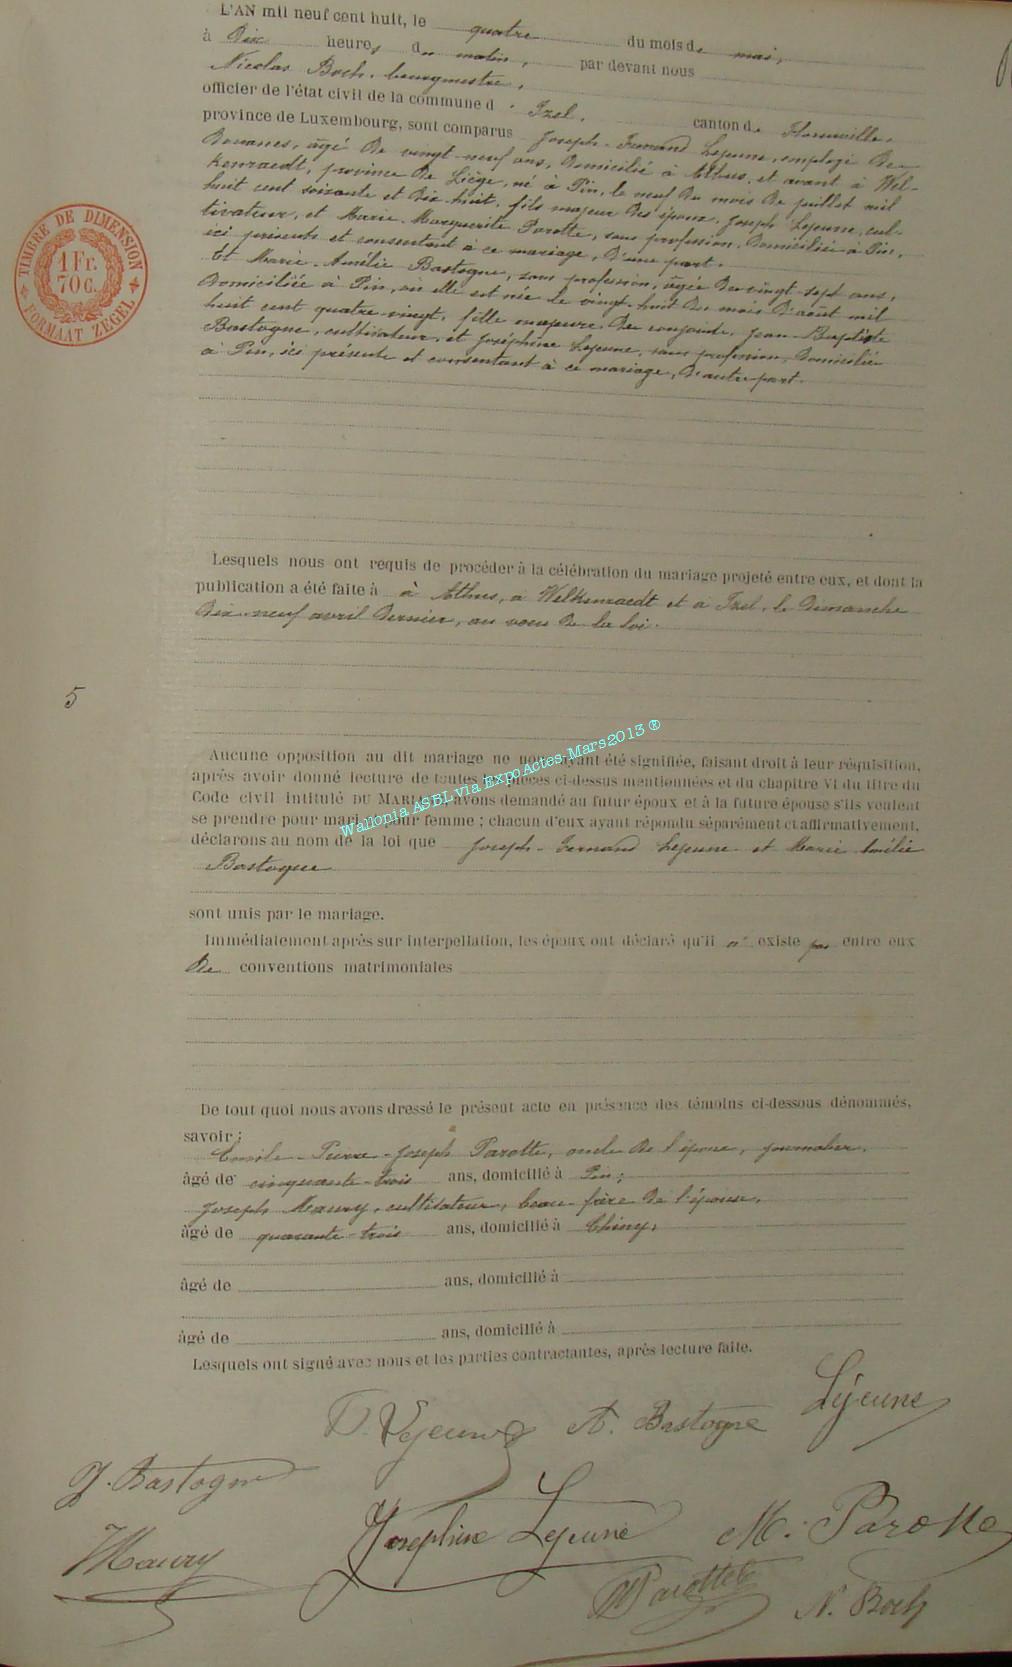 L'AN mil neuf cent huit, le quatre du mois de mai,
à Dix heures du matin, par devant nous
Nicolas Boch, bourgmestre,
officier de l'état civil de la commune d'Izel, canton de Florenville,
province de Luxembourg, sont comparus Joseph-Fernand Lejeune, employé de
Douanes, âgé de vingt-neuf ans, domicilié à Athus, et avant à Wel-
kenraedt, province de Liège, né à Pin, le neuf du mois de juillet mil
huit cent soixante et dix-huit, fils majeur des époux, Joseph Lejeune, cul-
tivateur, et Marie-Marguerite Parotte, sans profession, domiciliés à Pin,
ici présents et consentant à ce mariage, d'une part.
Et Marie-Amélie Bastogne, sans profession, âgée de vingt-sept ans,
domiciliée à Pin, où elle est née le vingt-huit du mois d'août mil
huit cent quatre-vingt, fille majeure des conjoints, Jean-Baptiste
Bastogne, cultivateur, et Joséphine Lejeune, sans profession, domiciliés
à Pin, ici présents et consentant à ce mariage, d'autre part.
TIMBRE DE DIMENSION
1 Fr.
70 C.
FORMAAT ZEGEL
Lesquels nous ont requis de procéder à la célébration du mariage projeté entre eux, et dont la
publication a été faite à à Athus, à Welkenraedt et à Izel, le Dimanche
Dix-neuf avril dernier, au vœu de la loi.
5
Aucune opposition au dit mariage ne nous ayant été signifiée, faisant droit à leur réquisition,
après avoir donné lecture de toutes les pièces ci-dessus mentionnées et du chapitre VI du titre du
Code civil intitulé DU MARIAGE, avons demandé au futur époux et à la future épouse s'ils veulent
se prendre pour mari et pour femme ; chacun d'eux ayant répondu séparément et affirmativement,
déclarons au nom de la loi que Joseph-Fernand Lejeune et Marie Amélie
Bastogne
Wallonia ASBL via ExpoActes-Mars2013 ®
sont unis par le mariage.
Immédiatement après sur interpellation, les époux ont déclaré qu'il n' existe pas entre eux
de conventions matrimoniales
De tout quoi nous avons dressé le présent acte en présence des témoins ci-dessous dénommés,
savoir :
Emile-Pierre-Joseph Parotte, oncle de l'époux, journalier,
âgé de cinquante-trois ans, domicilié à Pin ;
Joseph Maury, cultivateur, beau-frère de l'épouse,
âgé de quarante-trois ans, domicilié à Chiny,
âgé de ans, domicilié à
âgé de ans, domicilié à
Lesquels ont signé avec nous et les parties contractantes, après lecture faite.
F. Lejeune A. Bastogne Lejeune
J. Bastogne
Joséphine Lejeune M. Parotte
Maury
Parotte N. Boch